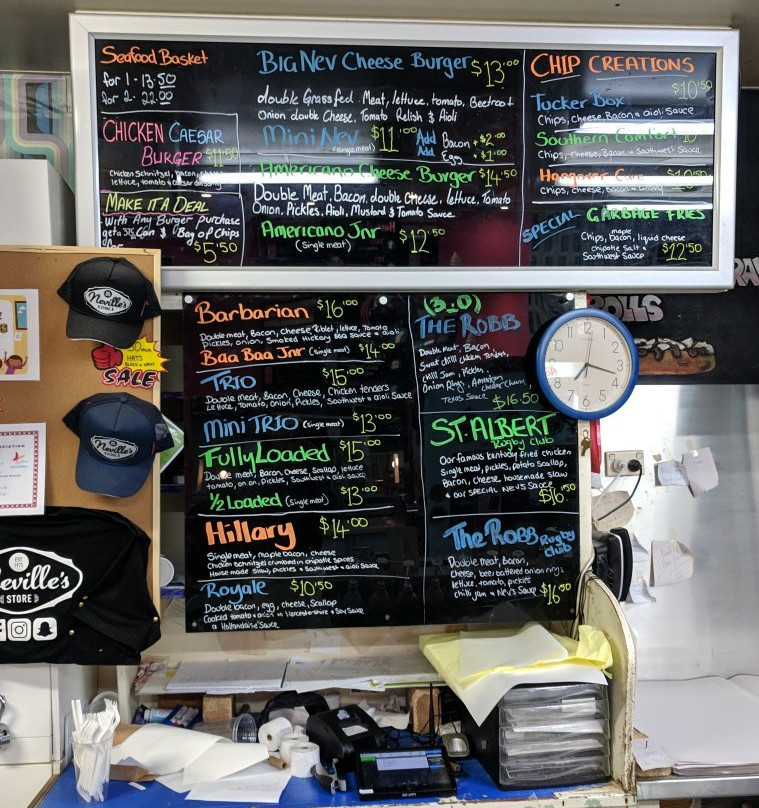 Seafood Basket
for 1 - 13.50
for 2 - 22.00
CHICKEN CAESAR
BURGER $11.50
Chicken Schnitzel, bacon,
lettuce, tomato & caesar dressing
MAKE IT A DEAL
With Any Burger purchase
get a 375 Can & Bag of Chips
For $5.50
BIG NEV Cheese Burger $13.00
double Grassfed Meat, lettuce, tomato, Beetroot
Onion double Cheese, Tomato Relish & Aioli
Mini Nev (single meat) $11.00
Add Bacon + $2.00
Add Egg + $1.00
Americano Cheese Burger $14.50
Double Meat, Bacon, double cheese, lettuce, Tomato
Onion, Pickles, Aioli, Mustard & Tomato Sauce.
Americano Jnr $12.50
(single meat)
CHIP CREATIONS
$10.50
Tucker Box
Chips, cheese, Bacon & aioli sauce
Southern Comfort
Chips, cheese, Bacon & Southwest Sauce
Hangover Cure $10.50
Chips, cheese, Bacon & Gravy
SPECIAL GARBAGE FRIES
maple
Chips, bacon, liquid cheese
chipotle Salt &
Southwest Sauce $12.50
Barbarian $16.00
Double meat, Bacon, Cheese, Riblet, lettuce, Tomato
Pickles, onion, Smoked Hickory BBQ Sauce & aioli
Baa Baa Jnr (single meat) $14.00
TRIO $15.00
Double meat, Bacon, Cheese, Chicken tenders
Lettuce, Tomato, Onion, Pickles, Southwest & aioli Sauce
Mini TRIO (single meat) $13.00
Fully Loaded $15.00
Double meat, Bacon, Cheese, Scallop, lettuce
tomato, onion, Pickles, Southwest & aioli Sauce
1/2 Loaded (single meat) $13.00
Hillary $14.00
Single meat, maple bacon, cheese
Chicken schnitzel crumbed in chipotle spices
House made slaw, pickles & Southwest & aioli Sauce
Royale $10.50
Double bacon, egg, cheese, Scallop
Cooked tomato & onion in Worcestershire & Soy Sauce
& Hollandaise Sauce
(3.0)
THE ROBB
Double Meat, Bacon
Sweet chilli chicken tenders,
chilli Jam, Pickles,
Onion Rings, American
Texas Sauce $16.50
ST. ALBERT
Rugby club
Our famous kentucky fried chicken
Single meat, pickles, potato scallop,
Bacon, cheese, housemade slaw
& our SPECIAL NEV'S SAUCE
$16.50
The ROBB Rugby club
Double meat, bacon,
cheese, beer battered onion rings
lettuce, tomato, pickles
chilli jam & Nev's Sauce $16.50
Neville's
STORE
HATS
SALE
Neville's
STORE
EST 1975
Neville's
STORE
12
1
2
3
4
5
6
7
8
9
10
11